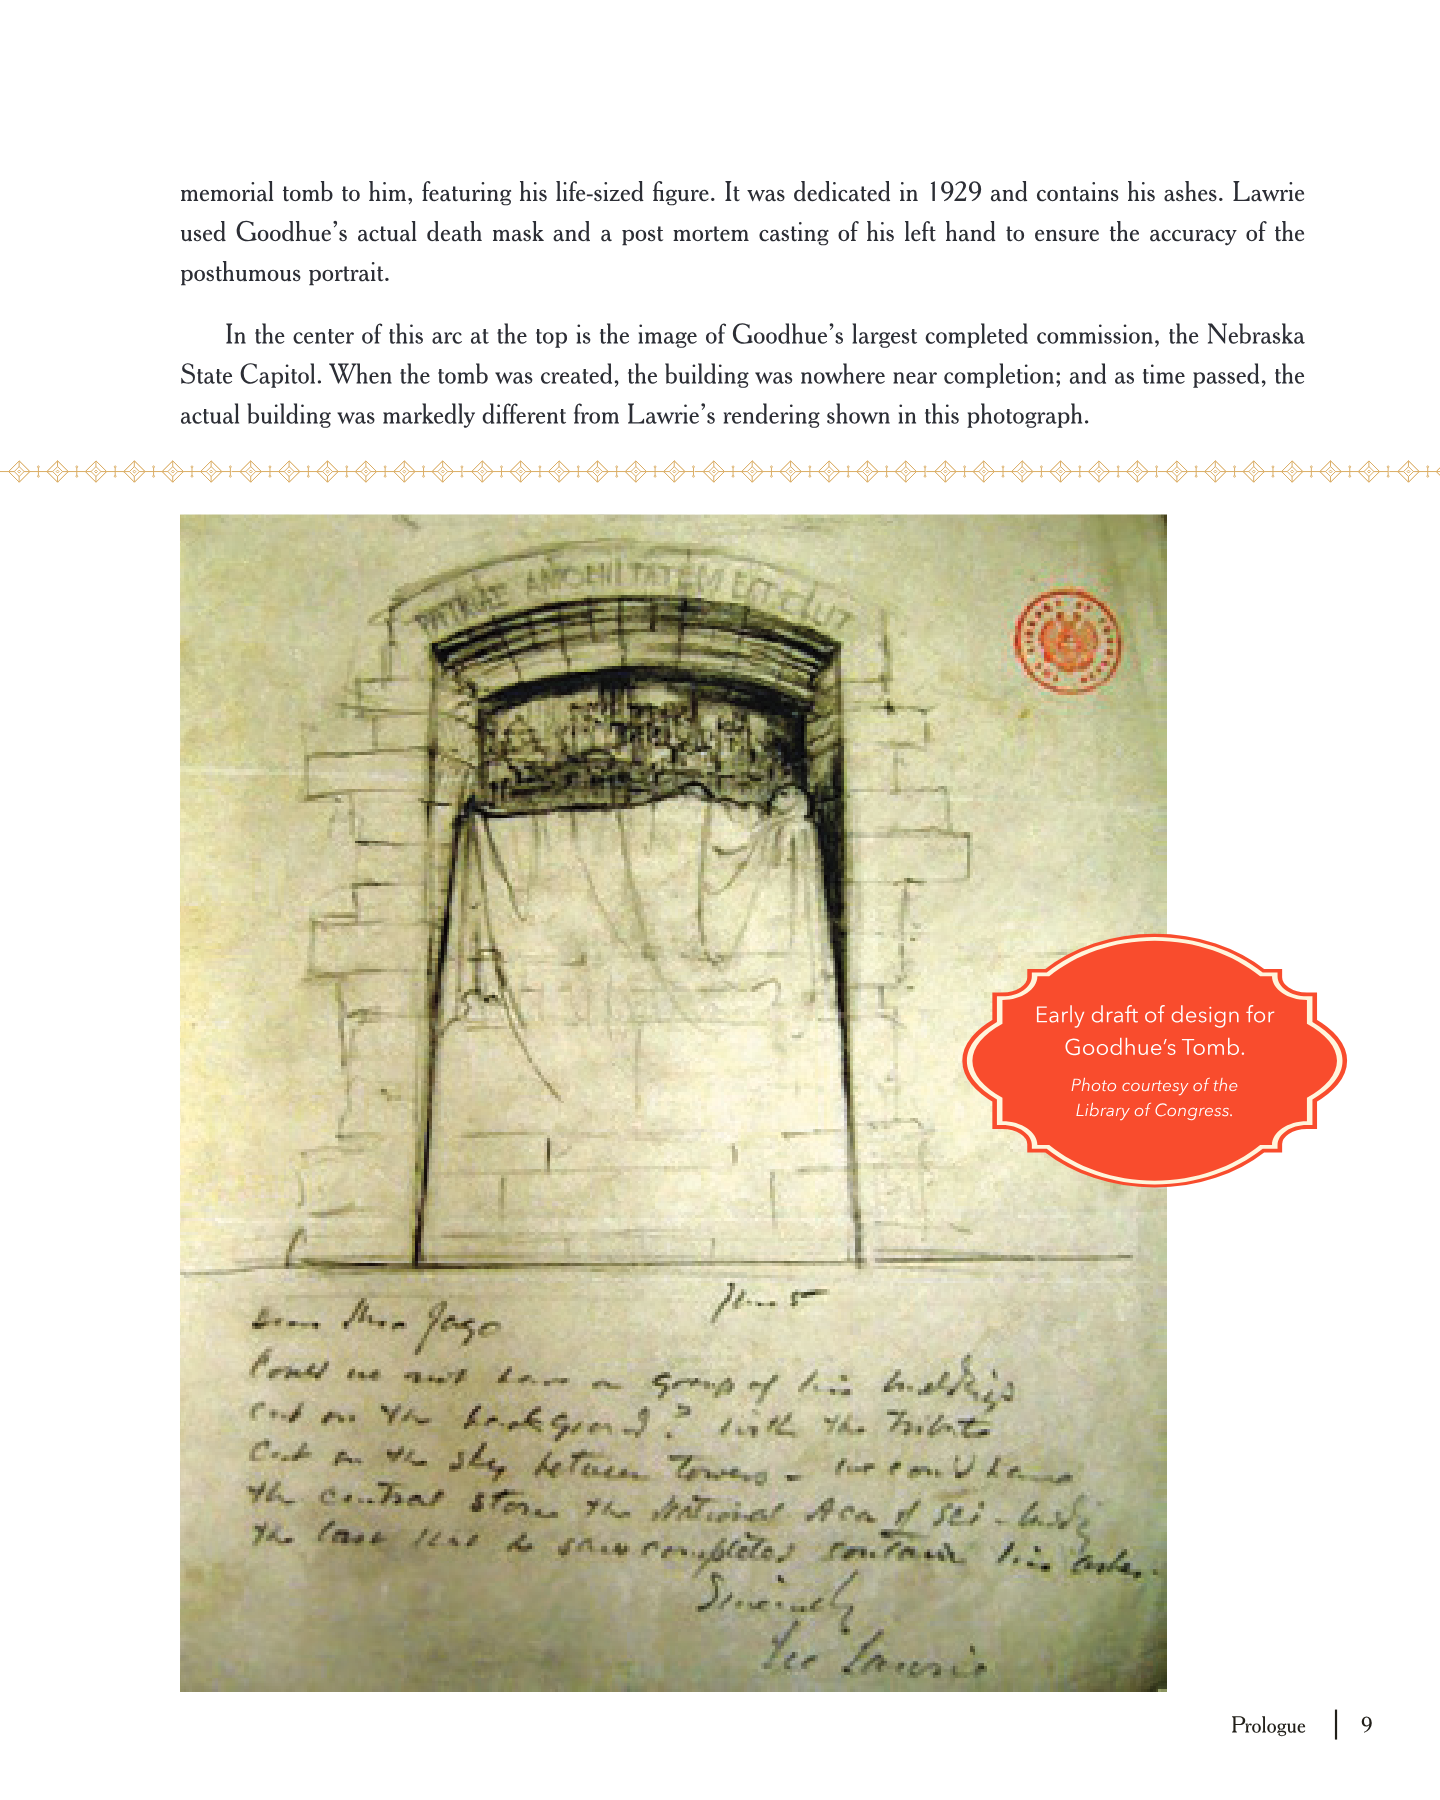 memorial tomb to him, featuring his life-sized figure. It was dedicated in 1929 and contains his ashes. Lawrie
used Goodhue’s actual death mask and a post mortem casting of his left hand to ensure the accuracy of the
posthumous portrait.
In the center of this arc at the top is the image of Goodhue’s largest completed commission, the Nebraska
State Capitol. When the tomb was created, the building was nowhere near completion; and as time passed, the
actual building was markedly different from Lawrie’s rendering shown in this photograph.
AMOENITATEM EXCOLUIT
LIBRARY OF CONGRESS
Early draft of design for
Goodhue’s Tomb.
Photo courtesy of the
Library of Congress.
5
Dear Jago
Could we not have a group of his buildings
cut on the background? with the Tribute
cut on the sky between Towers - we could have
the central stone the National Aca of Sci - bldg
the last that he saw completed contain his ashes.
Sincerely
Lee Lawrie
Prologue | 9